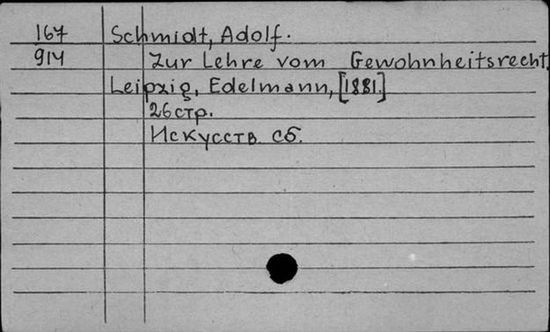 167 Schmidt, Adolf.
914 Zur Lehre vom Gewohnheitsrecht.
Leipzig, Edelmann, [1881.]
26 стр.
Искусств. сб.